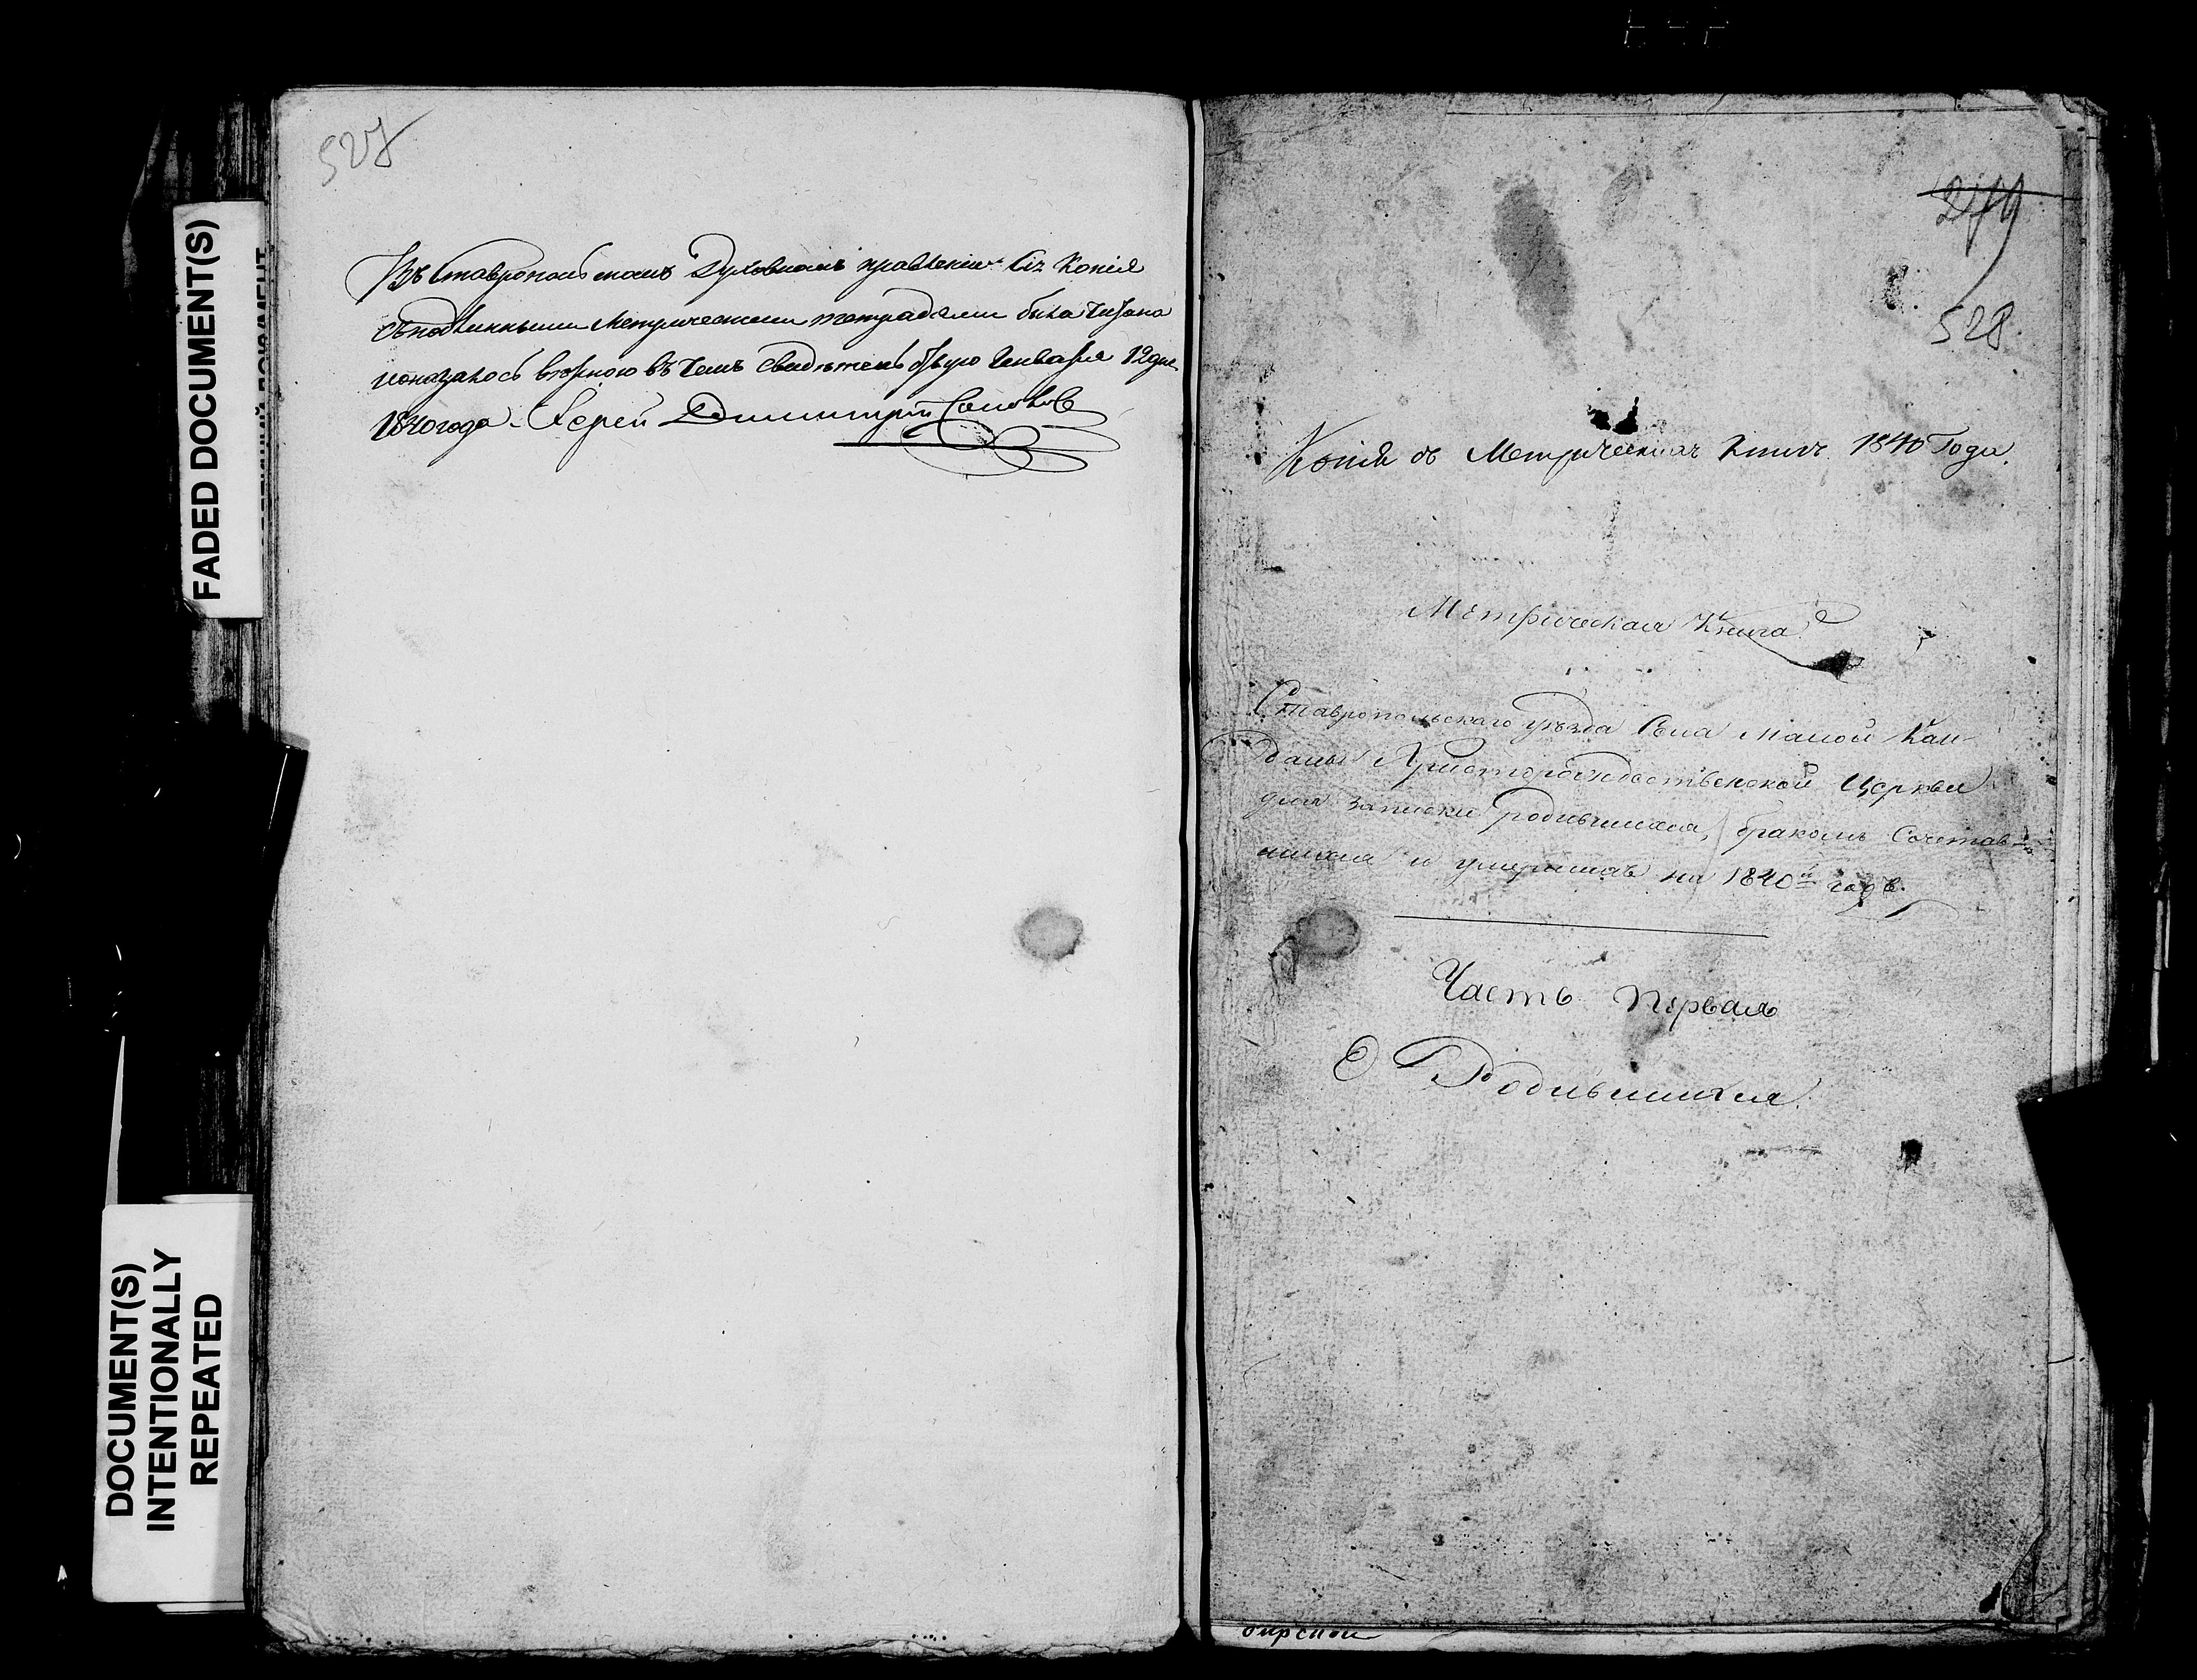 527
Въ Ставропольскомъ Духовномъ правленіи Сія Копія
съ подлинными Метрическими тетрадями была читана
и оказалось верною въ чемъ свидѣтельствую Генваря 12 дня
1840 года. Іерей Димитрій
279
528
Копія съ Метрическихъ Книгъ 1840 Года.
Метрическая Книга
Ставропольскаго уѣзда Села Малой Кан-
далы Христорождественской Церкви
для записки родившихся, бракомъ Сочетав-
шихся и умершихъ на 1840й годъ.
Часть Первая
О Родившихся.
FADED DOCUMENT(S)
DOCUMENT(S)
INTENTIONALLY
REPEATED